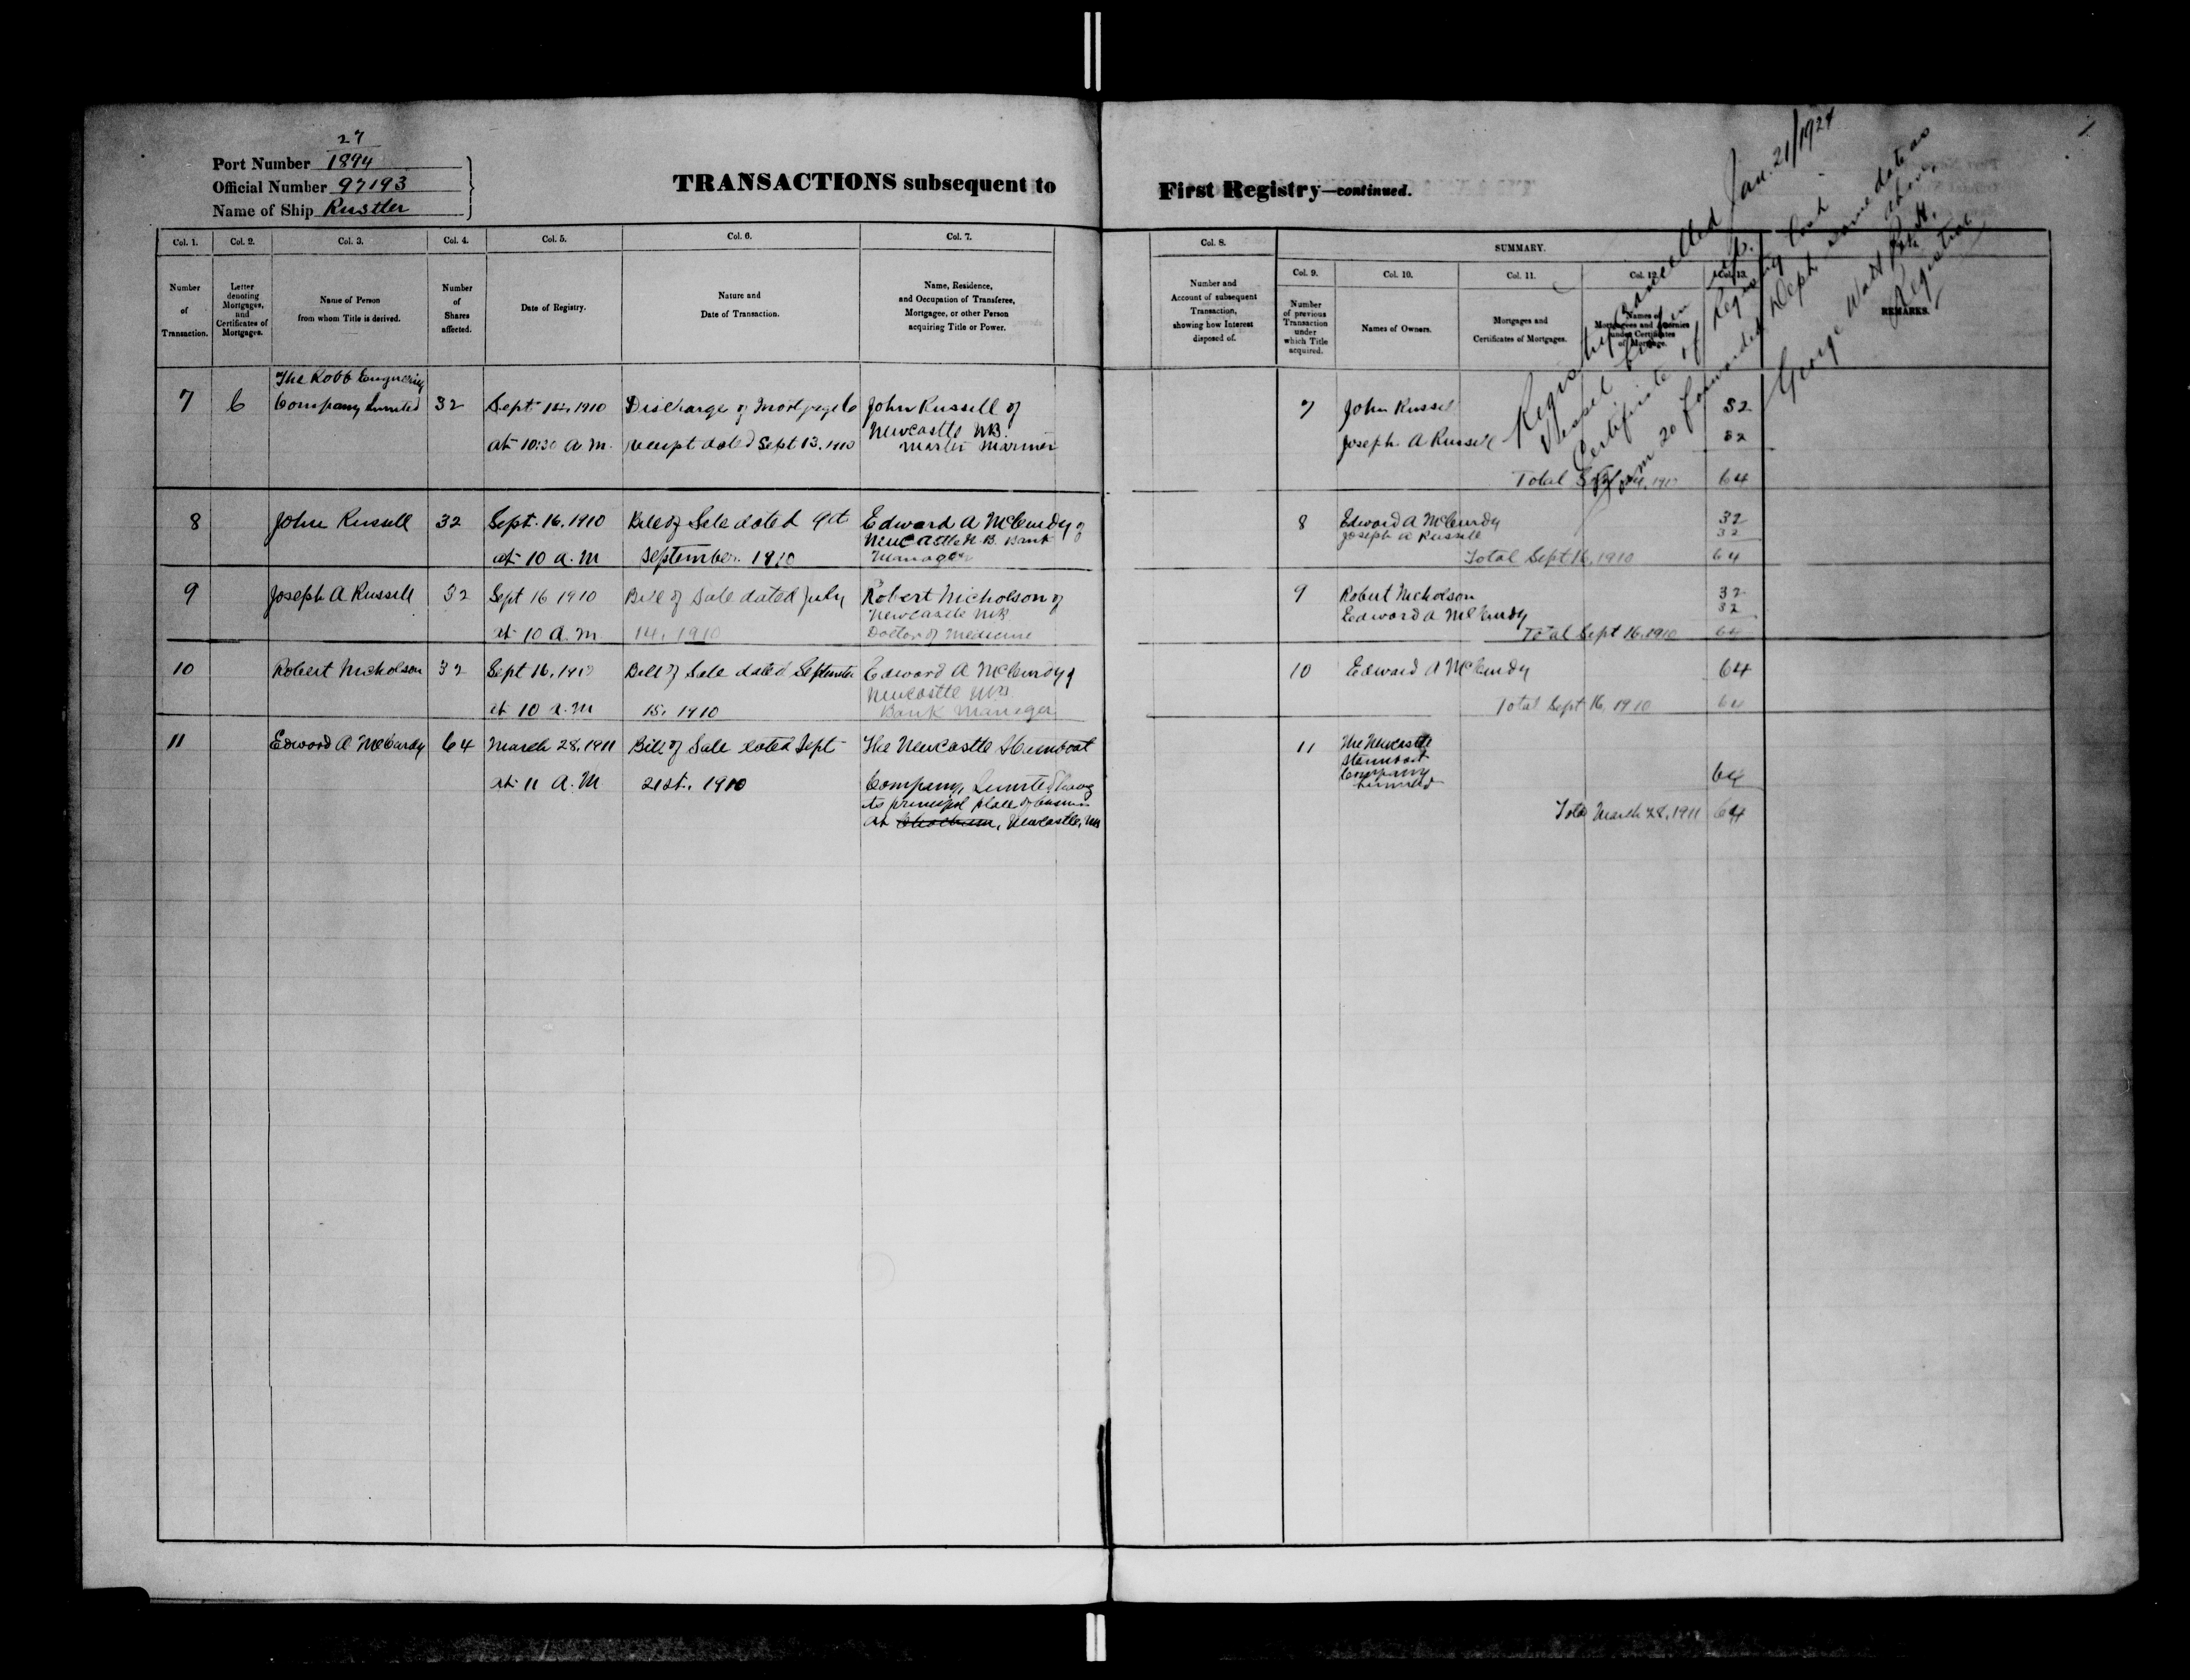 27
Port Number 1894
Official Number 97193
Name of Ship Rustler
TRANSACTIONS subsequent to
First Registry—continued.
Col. 1.
Number
of
Transaction.
Col. 2.
Letter
denoting
Mortgages,
and
Certificates of
Mortgages.
Col. 3.
Name of Person
from whom Title is derived.
Col. 4.
Number
of
Shares
affected.
Col. 5.
Date of Registry.
Col. 6.
Nature and
Date of Transaction.
Col. 7.
Name, Residence,
and Occupation of Transferee,
Mortgagee, or other Person
acquiring Title or Power.
Col. 8.
Number and
Account of subsequent
Transaction,
showing how Interest
disposed of.
SUMMARY.
Col. 9.
Number
of previous
Transaction
under
which Title
acquired.
Col. 10.
Names of Owners.
Col. 11.
Mortgages and
Certificates of Mortgages.
Col. 12.
Names of
Mortgagees and Attornies
under Certificates
of Mortgage.
Col. 13.
REMARKS.
Registry cancelled Jan. 21/1924
Vessel
Certificate of Registry lost
Form 20 forwarded Dept. same date as
above
George Watt
Registrar
7
C
The Robb Engineering
Company Limited
32
Sept 1910
at 10:30 a.m.
Discharge of Mortgage C
receipt dated Sept 13. 1910
John Russell of
Newcastle NB.
Master Mariner
7
John Russell
32
Joseph A Russell
32
Total
64
8
John Russell
32
Sept. 16. 1910
at 10 a.m
Bill of Sale dated
September. 1910
Edward A McCurdy of
Newcastle N.B. Bank
Manager
8
Edward A McCurdy
32
Joseph A Russell
32
Total Sept 16, 1910
64
9
Joseph A Russell
32
Sept 16 1910
at 10 a.m
Bill of Sale dated July
14. 1910
Robert Nicholson of
Newcastle NB
Doctor of Medicine
9
Robert Nicholson
32
Edward A McCurdy
32
Total Sept 16. 1910
64
10
Robert Nicholson
32
Sept 16, 1910
at 10 a.m
Bill of Sale dated September
15. 1910
Edward A McCurdy of
Newcastle NB
Bank Manager
10
Edward A McCurdy
64
Total Sept 16, 1910
64
11
Edward A McCurdy
64
March 28, 1911
at 11 A.M
Bill of Sale dated Sept
21st. 1910
The Newcastle Steamboat
Company, Limited having
its principal place of business
at Chatham, Newcastle, NB
11
The Newcastle
Steamboat
Company
Limited
64
Total March 28, 1911
64